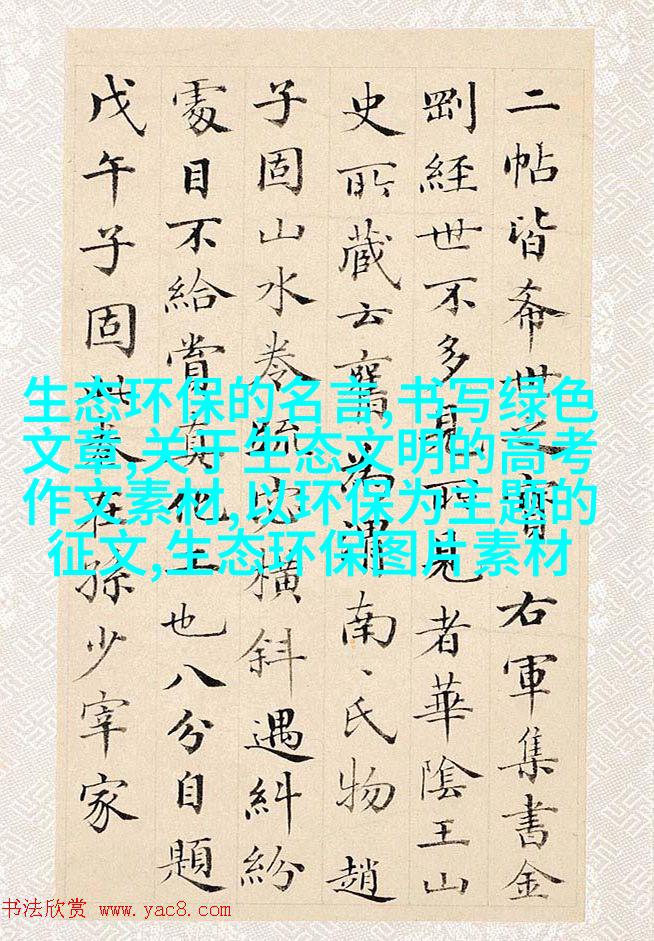 二帖皆希世之寶右軍集書金
剛經世不多見所見者華陰王山
史所藏云舊為渭南〻氏物趙
子固山水卷疏密橫斜遇糾紛
處目不給賞真化工也八分自題
戊午子固此卷在孫少宰家
生态环保的名言,书写绿色
文章,关于生态文明的高考
作文素材,以环保为主题的
征文,生态环保图片素材
书法欣赏 www.yac8.com